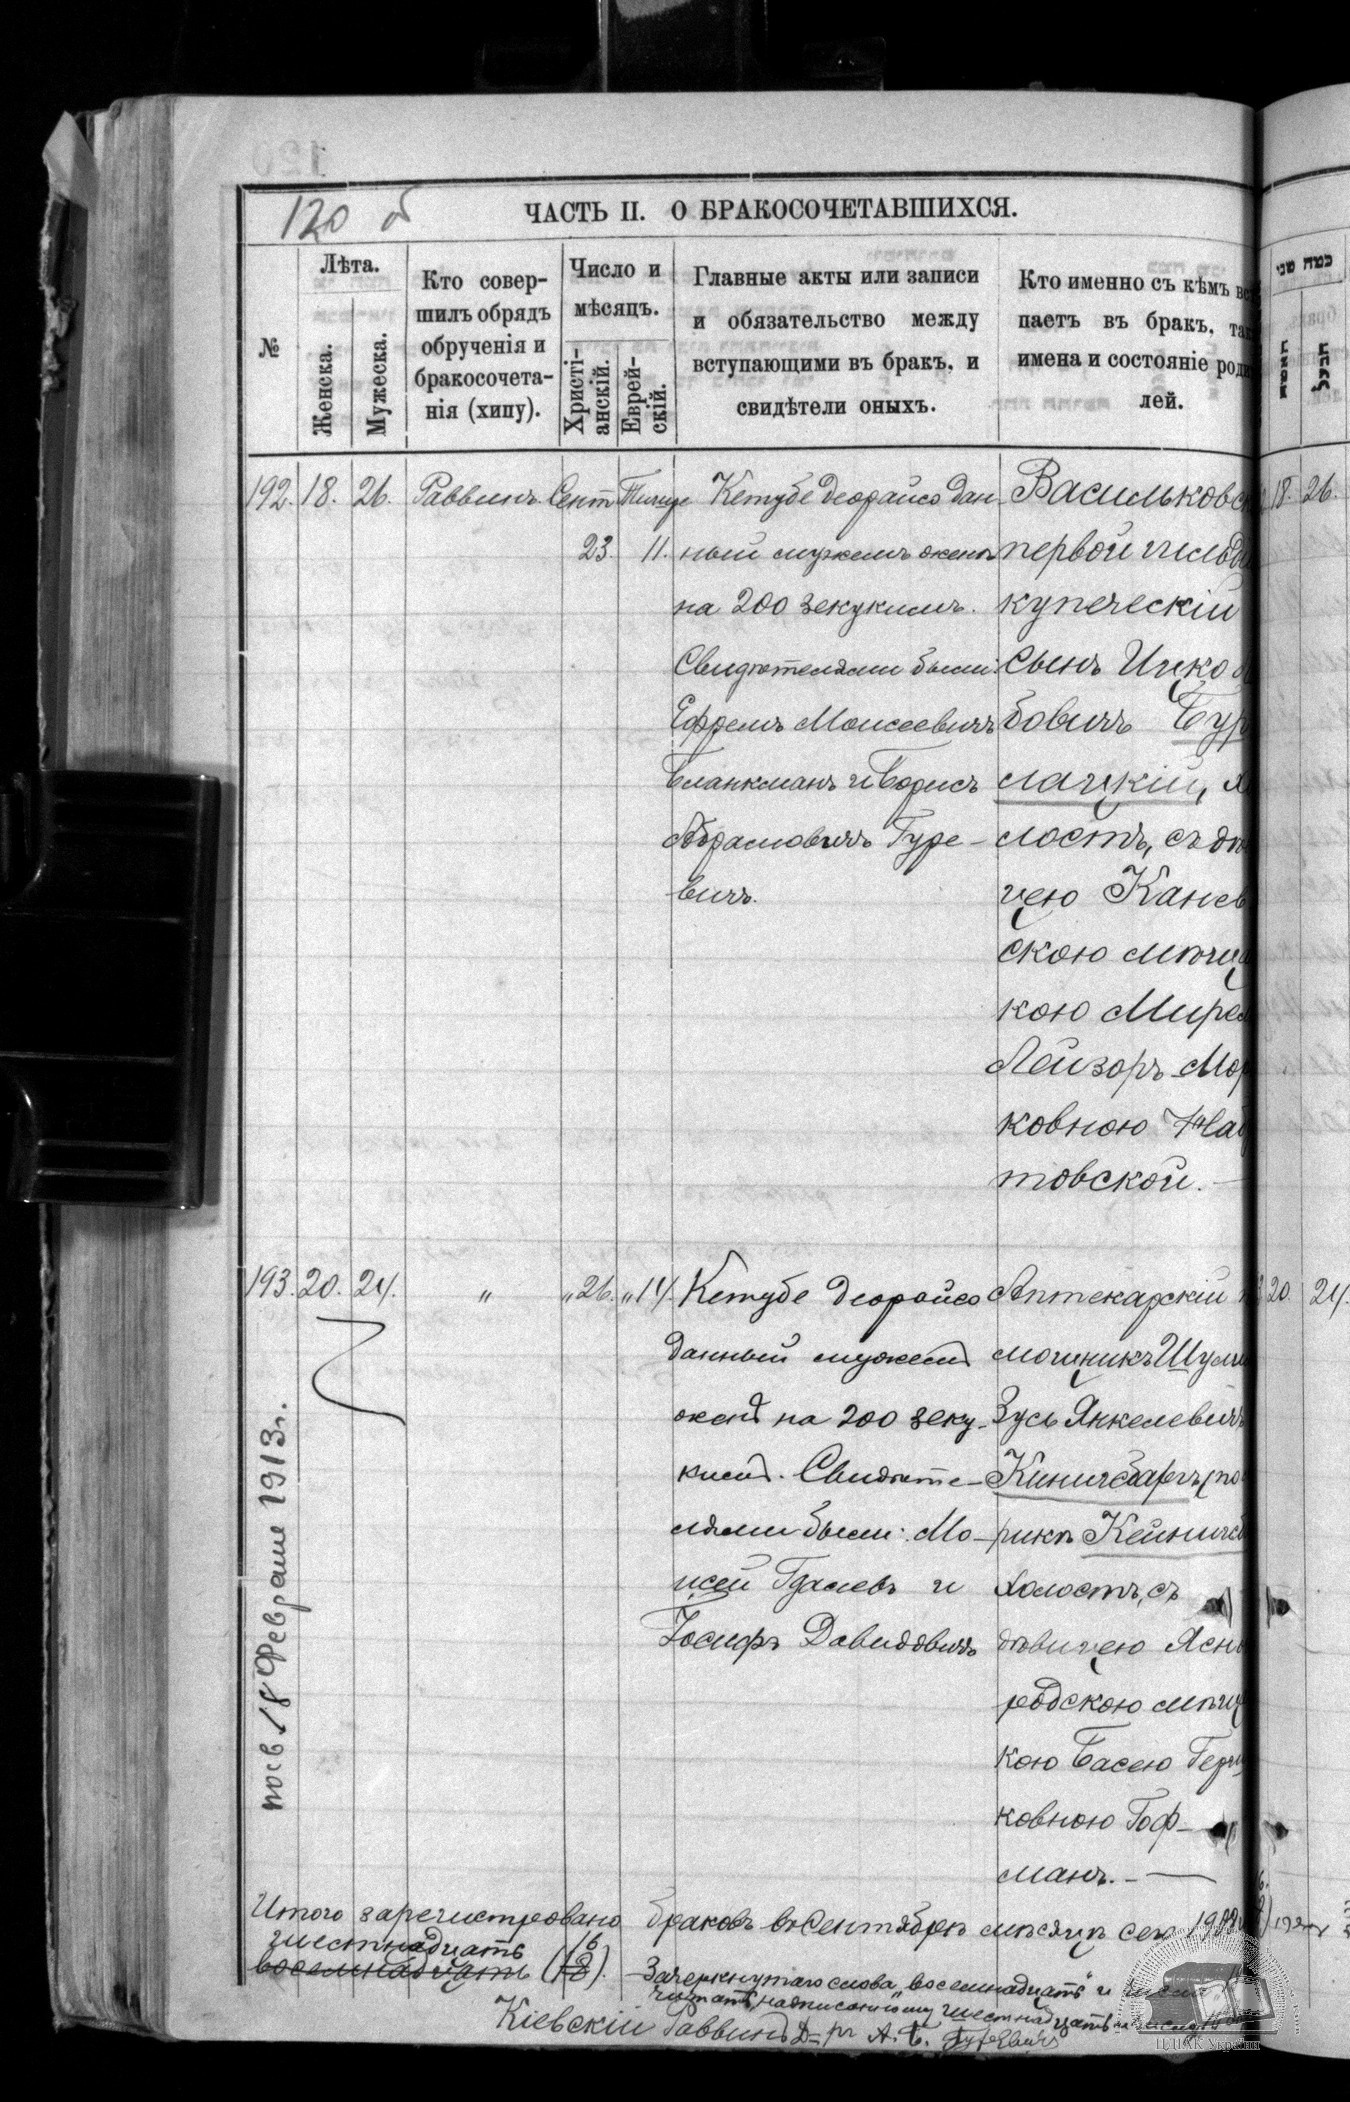 120 об
ЧАСТЬ II. О БРАКОСОЧЕТАВШИХСЯ.
№
Лѣта.
Женска.
Мужеска.
Кто совер-
шилъ обрядъ
обрученія и
бракосочета-
нія (хипу).
Число и
мѣсяцъ.
Христі-
анскій.
Еврей-
скій.
Главные акты или записи
и обязательство между
вступающими въ бракъ, и
свидѣтели оныхъ.
Кто именно съ кѣмъ вс
паетъ въ бракъ, так
имена и состояніе роди
лей.
192. 18. 26. Раввинъ. Сент Тишре
23. 11.
Кетубе деорайсо дан-
ный мужемъ женѣ
на 200 зекукимъ.
Свидѣтелями были:
Ефремъ Моисеевичъ
Бланкманъ и Борисъ
Абрамовичъ Гуре-
вичъ.
Васильковск
первой гильді
купеческій
сынъ Ицко
бовичъ Бур
лацкій, хо
лостъ, съ дѣ
цею Канев
скою мѣща
кою Мирел
Лейзоръ-Мор
ковною
товской.
193. 20. 24. " " 26. " 14.
Кетубе деорайсо
данный мужемъ
женѣ на 200 зеку-
кимъ. Свидѣте-
лями были: Мо-
исей Гдалевъ и
Іосифъ Давидовичъ
Аптекарскій
мощникъ Шулим
Зусь Янкелевичъ
Кинисбергъ, (по
рикъ Кейнисб
холостъ, съ
дѣвицею Ясно
родскою мѣщ
кою Басею Герш
ковною Гоф-
манъ.
пос в 18 Феврале 1913 г.
Итого зарегистровано браковъ въ Сентябрѣ мѣсяцѣ сего
шестнадцать 16
восемнадцать (18).
Зачеркнутаго слова "восемнадцать" и
читать надписанному шестнадцать
Кіевскій Раввинъ Д-ръ А. Б. Гуревичъ
כמה שני
18. 26.
20. 24.
ЦДІАК України